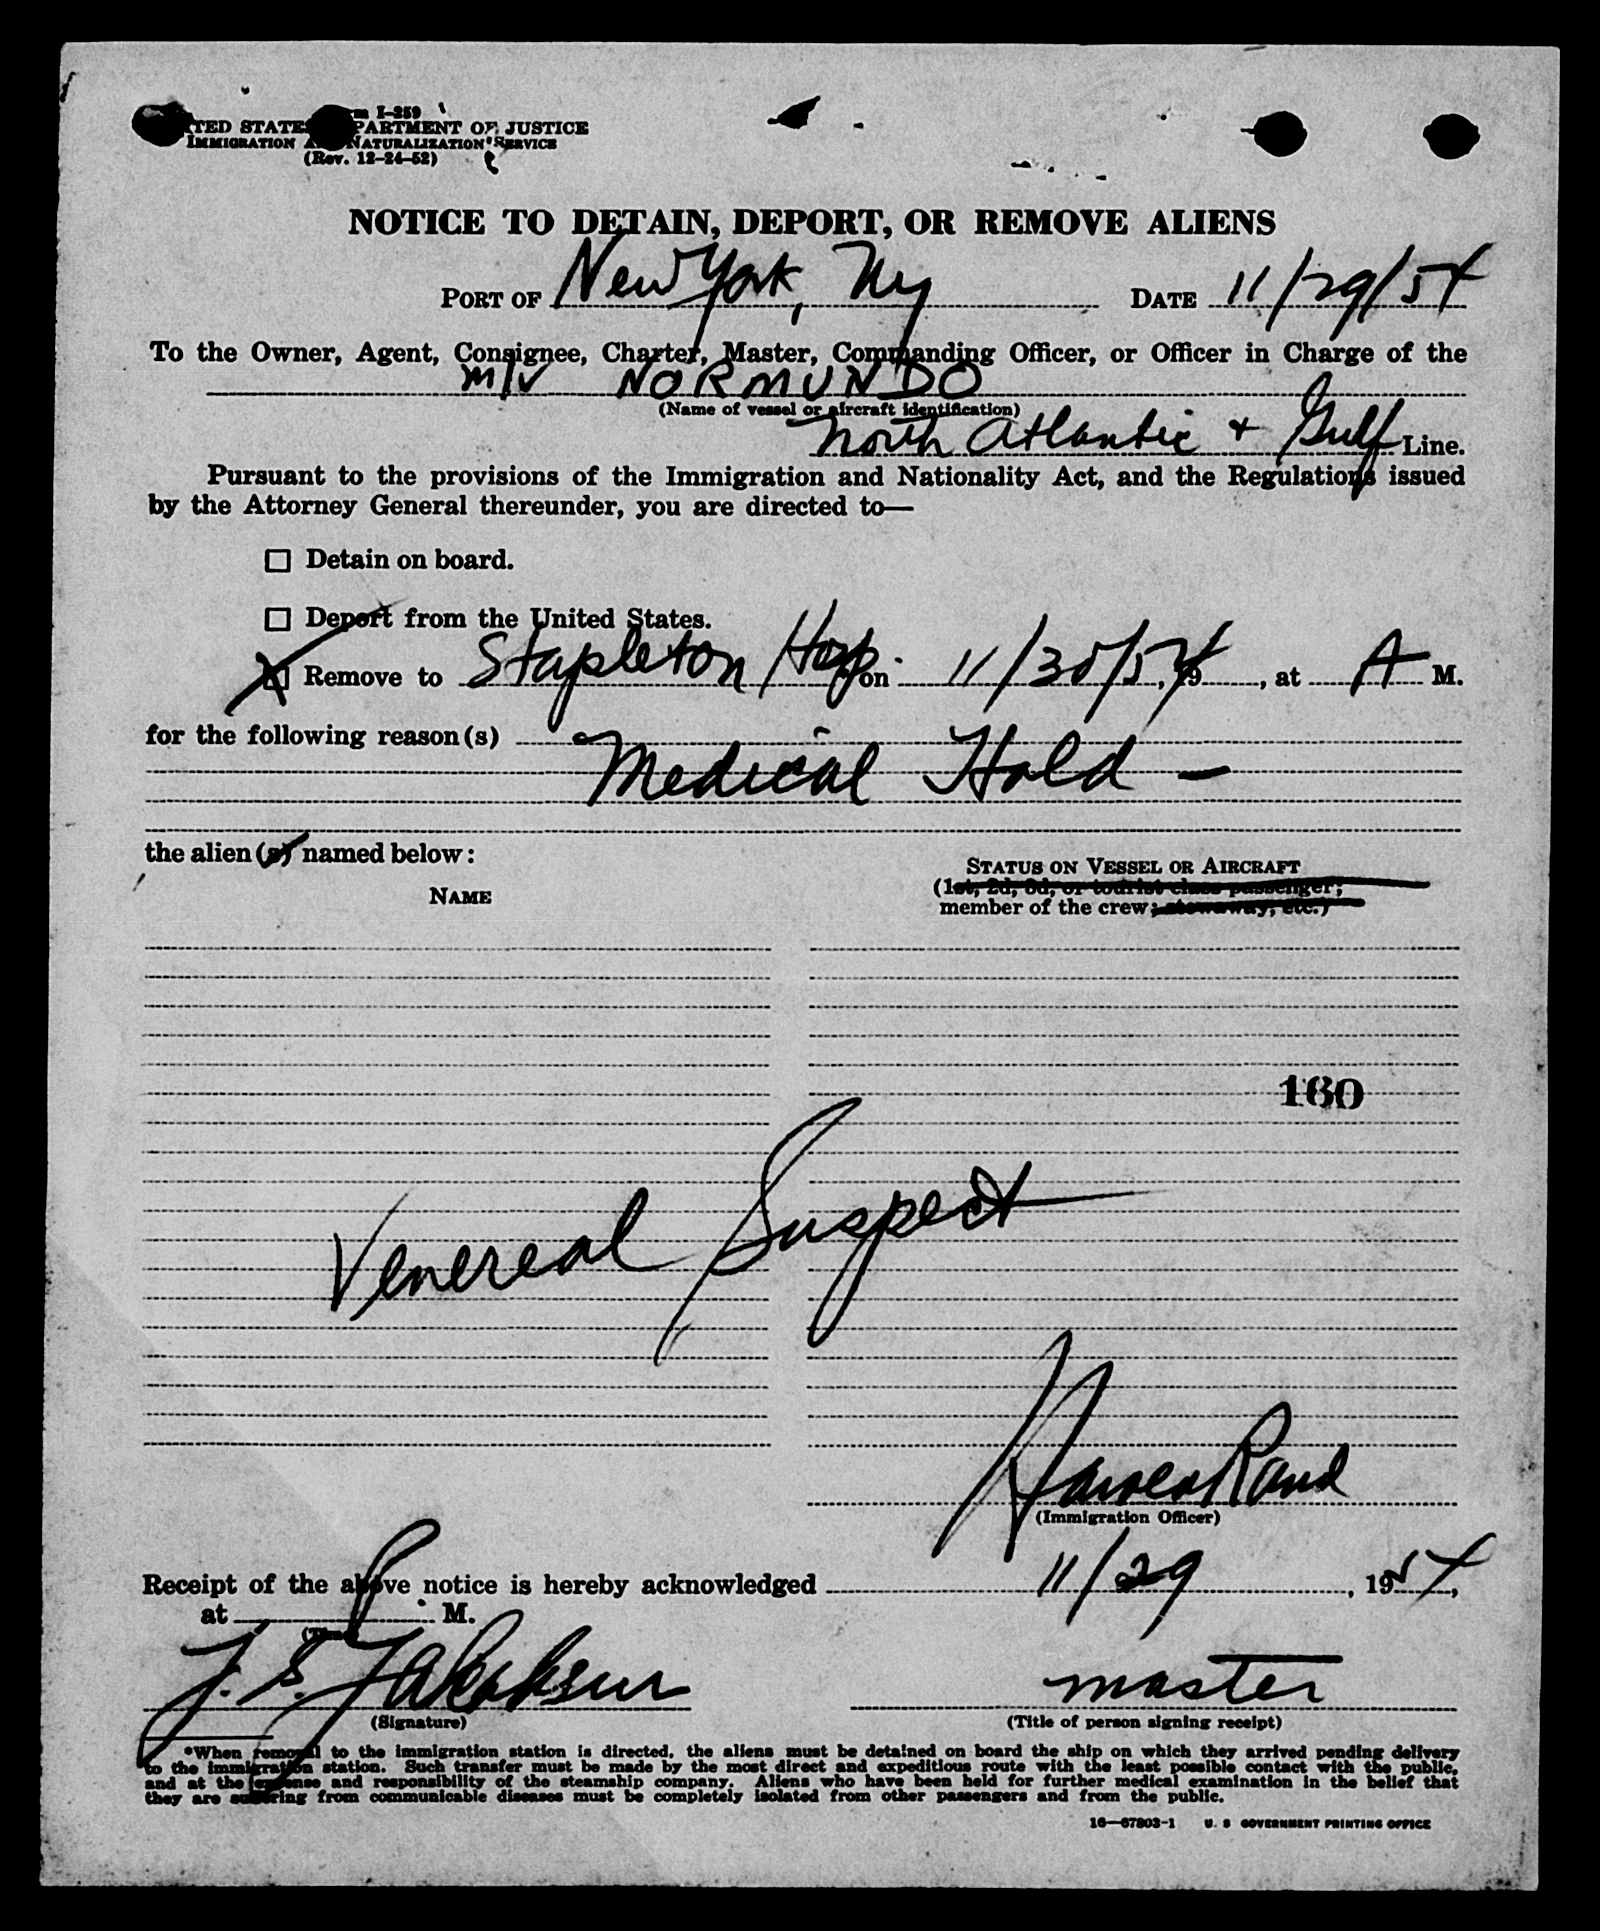 Form I-259
UNITED STATES DEPARTMENT OF JUSTICE
IMMIGRATION AND NATURALIZATION SERVICE
(Rev. 12-24-52)
NOTICE TO DETAIN, DEPORT, OR REMOVE ALIENS
PORT OF New York, Ny DATE 11/29/54
To the Owner, Agent, Consignee, Charter, Master, Commanding Officer, or Officer in Charge of the
M/V NORMUNDO
(Name of vessel or aircraft identification)
North Atlantic + Gulf Line.
Pursuant to the provisions of the Immigration and Nationality Act, and the Regulations issued
by the Attorney General thereunder, you are directed to—
☐ Detain on board.
☐ Deport from the United States.
☒ Remove to Stapleton Hosp. on 11/30/54, 19, at A M.
for the following reason(s)
Medical Hold -
the alien(s) named below:
STATUS ON VESSEL OR AIRCRAFT
(1st, 2d, 3d, or tourist class passenger;
NAME
member of the crew; stowaway, etc.)
160
Venereal Suspect
Rand
(Immigration Officer)
Receipt of the above notice is hereby acknowledged 11/29, 1954,
at M.
(Time)
J. S. master
(Signature) (Title of person signing receipt)
*When removal to the immigration station is directed, the aliens must be detained on board the ship on which they arrived pending delivery
to the immigration station. Such transfer must be made by the most direct and expeditious route with the least possible contact with the public,
and at the expense and responsibility of the steamship company. Aliens who have been held for further medical examination in the belief that
they are suffering from communicable diseases must be completely isolated from other passengers and from the public.
16—67803-1 U. S GOVERNMENT PRINTING OFFICE